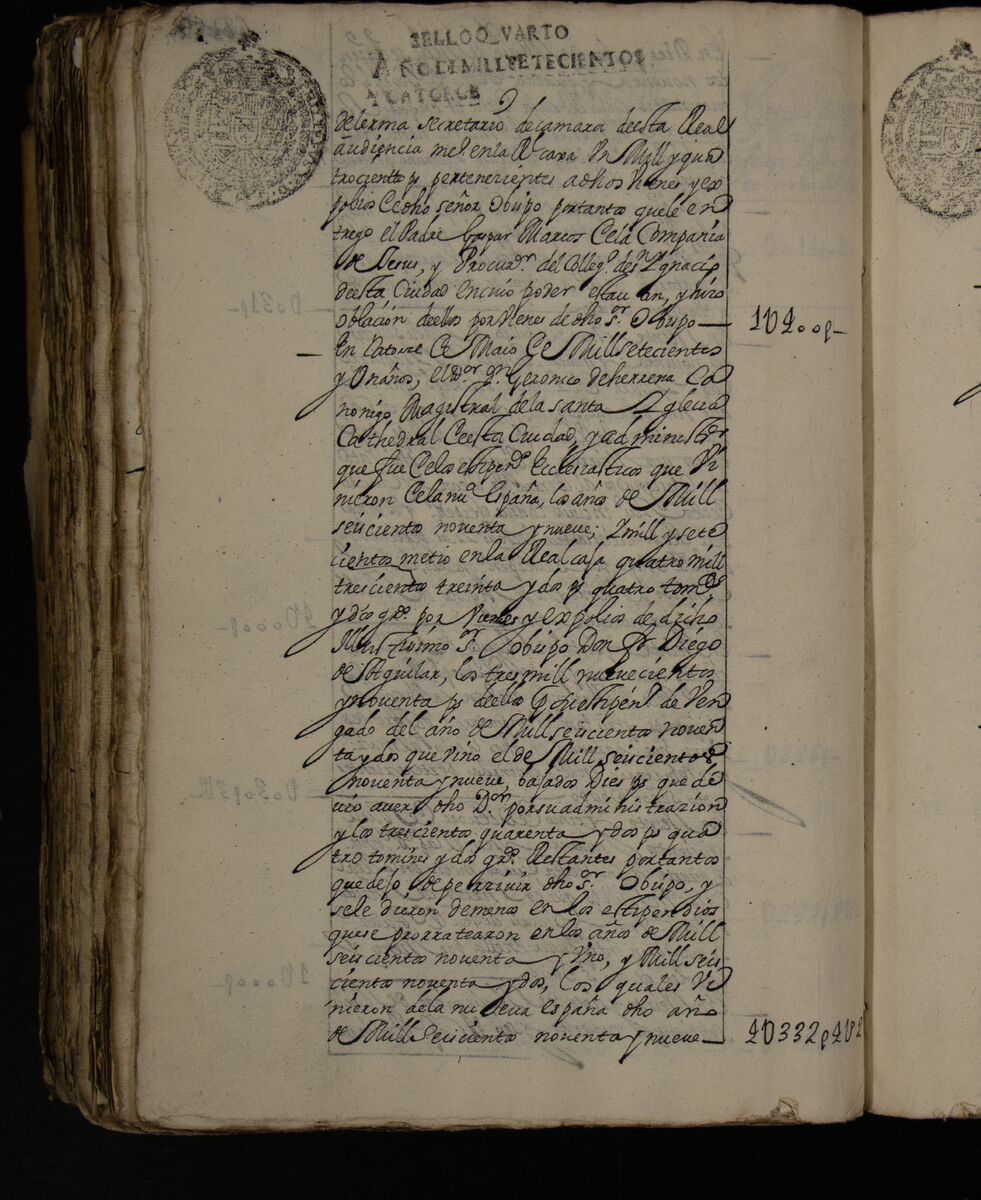 SELLO QVARTO
AÑO DE MILL SETECIENTOS
Y CATORCE
de lerma secretario de camara de esta Real
audiencia metº en la Rl caxa Un Mill y qua
trocientos ps pertenecientes a dhos vienes y ex
polios de dho señor Obispo por tantos que le en
trego el Padre Gaspar Marcos de la Compania
de Jesus, y Procurr. del Collegº de Sn Ygnacio
de esta Ciudad en cuio poder estauan, y hizo
oblacion de ellos por vienes de dho Sr. Obispo — 1U400p-
En Catorce de Maio de Mill setecientos
y Un años, el Dor Dn Geronimo de herrera Ca
nonigo Magistral de la santa Yglecia
Cathedral de esta Ciudad, y administror
que fue de los estipends Ecclesiasticos que Vi
nieron de la nuª España, los años de Mill
seiscientos noventa y nueve; y mill y sete
cientos metio en la Real caja quatro mill
trescientos treinta y dos ps quatro toms
y dos grs. por Vienes y expolios de dicho
Illustrisimo Sr. Obispo Don Fr Diego
de Aguilar, los tres mill nuevecientos
y noventa ps de ellos de Ven
gado del año de Mill seiscientos noven
ta y dos que vino el de Mill seiscientos
noventa y nueve, bajados Dies ps que de
uio auer dho Dor. por su administrazion
y los trescientos quarenta y dos ps qua
tro tomines y dos grs. Restantes por tantos
que dejo de percivir dho Sr. Obispo, y
se le dieron de menos en los estipendios
que se prorratearon en los años de Mill
seiscientos noventa y Uno, y Mill seis
cientos noventa y dos, los quales Vi
nieron de la nueua españa dho año
de Mill Seiscientos noventa y nueve — 4U332p4t02